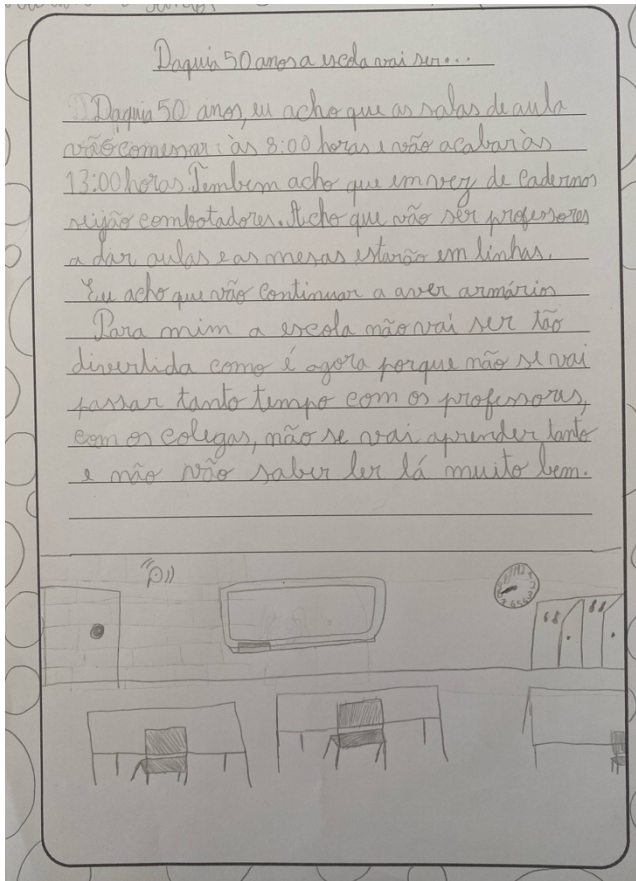 Daquia 50 anos a escola vai ser...
Daquia 50 anos, eu acho que as salas de aula
vão comessar: às 8:00 horas e vão acabar às
13:00 horas. Tembem acho que em vez de cadernos
seijão combotadores. Acho que vão ser professores
a dar aulas e as mesas estarão em linhas.
Eu acho que vão continuar a aver armários
Para mim a escola não vai ser tão
divertida como é agora porque não se vai
passar tanto tempo com os professores,
com os colegas, não se vai aprender tanto
e não vão saber ler lá muito bem.